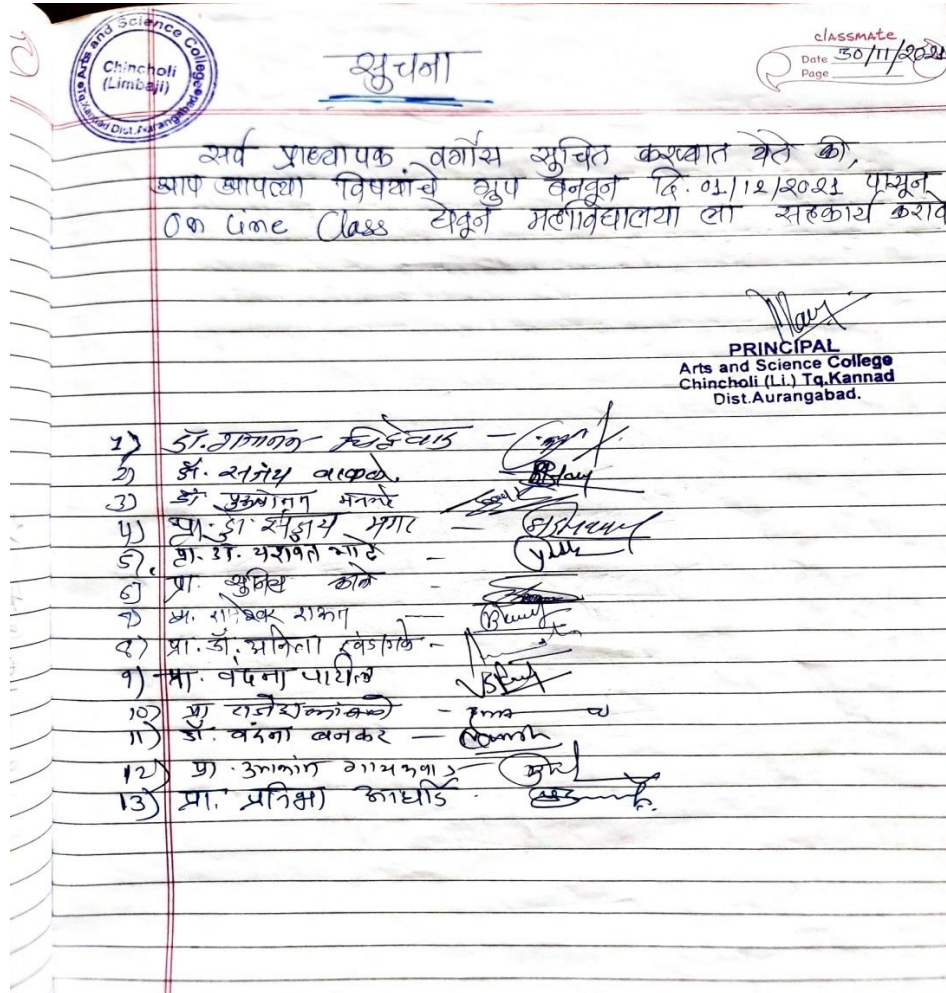 Arts and Science College
Chincholi
(Limbaji)
Tq. Kannad Dist. Aurangabad
सुचना
classmate
Date 30/11/2021
Page
सर्व प्राध्यापक वर्गास सुचित करण्यात येते की,
आप आपल्या विषयांचे ग्रुप बनवून दि. 01/12/2021 पासून
On line Class घेवून महाविद्यालया ला सहकार्य करावे
PRINCIPAL
Arts and Science College
Chincholi (Li.) Tq.Kannad
Dist.Aurangabad.
1) डॉ. गजानन -
2) डॉ. संजय वाकळे.
3) डॉ
4) प्रा. डॉ. संजय मगर -
5) प्रा. डॉ. यशवंत -
6) प्रा. सुनिल काळे -
7) रामेश्वर राऊत -
8) प्रा. डॉ. अनिता -
9) प्रा. वंदना पाटील
10) प्रा राजेश कांबळे -
11) डॉ. वंदना बनकर -
12) प्रा. उमाकांत गायकवाड -
13) प्रा. प्रतिभा